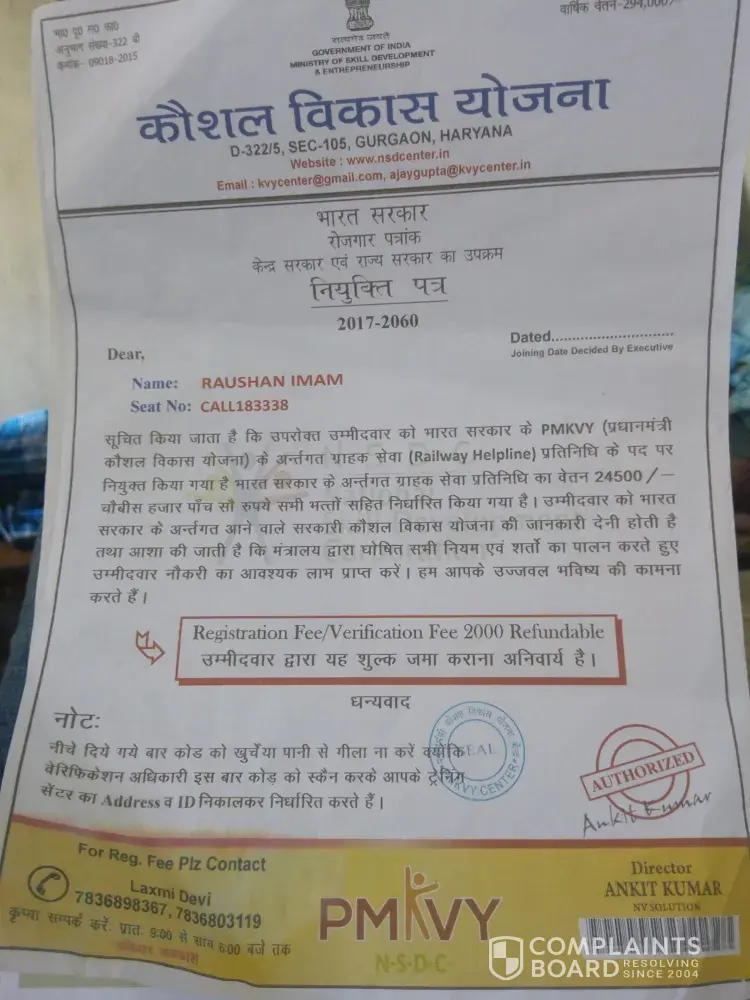 भा० पू० म० का०
अनुभाग संख्या-322 बी
क्रमांक- 09018-2015
वार्षिक वेतन-294,000/-
सत्यमेव जयते
GOVERNMENT OF INDIA
MINISTRY OF SKILL DEVELOPMENT
& ENTREPRENEURSHIP
कौशल विकास योजना
D-322/5, SEC-105, GURGAON, HARYANA
Website : www.nsdcenter.in
Email : kvycenter@gmail.com, ajaygupta@kvycenter.in
भारत सरकार
रोजगार पत्रांक
केन्द्र सरकार एवं राज्य सरकार का उपक्रम
नियुक्ति पत्र
2017-2060
Dated..............................
Joining Date Decided By Executive
Dear,
Name: RAUSHAN IMAM
Seat No: CALL183338
सूचित किया जाता है कि उपरोक्त उम्मीदवार को भारत सरकार के PMKVY (प्रधानमंत्री
कौशल विकास योजना) के अर्न्तगत ग्राहक सेवा (Railway Helpline) प्रतिनिधि के पद पर
नियुक्त किया गया है भारत सरकार के अर्न्तगत ग्राहक सेवा प्रतिनिधि का वेतन 24500/–
चौबीस हजार पाँच सौ रुपये सभी भत्तों सहित निर्धारित किया गया है। उम्मीदवार को भारत
सरकार के अर्न्तगत आने वाले सरकारी कौशल विकास योजना की जानकारी देनी होती है
तथा आशा की जाती है कि मंत्रालय द्वारा घोषित सभी नियम एवं शर्तो का पालन करते हुए
उम्मीदवार नौकरी का आवश्यक लाभ प्राप्त करें। हम आपके उज्जवल भविष्य की कामना
करते हैं।
Registration Fee/Verification Fee 2000 Refundable
उम्मीदवार द्वारा यह शुल्क जमा कराना अनिवार्य है।
धन्यवाद
नोटः
नीचे दिये गये बार कोड को खुर्चेंया पानी से गीला ना करें क्योंकि
वेरिफिकेशन अधिकारी इस बार कोड़ को स्कैन करके आपके ट्रेनिंग
सेंटर का Address व ID निकालकर निर्धारित करते हैं।
SEAL
PMKVY CENTER
AUTHORIZED
Ankit Kumar
For Reg. Fee Plz Contact
Laxmi Devi
7836898367, 7836803119
कृप्या सम्पर्क करें: प्रातः 9:00 से सायं 6:00 बजे तक
PMKVY
N-S-D-C
Director
ANKIT KUMAR
NV SOLUTION
COMPLAINTS
BOARD RESOLVING
SINCE 2004